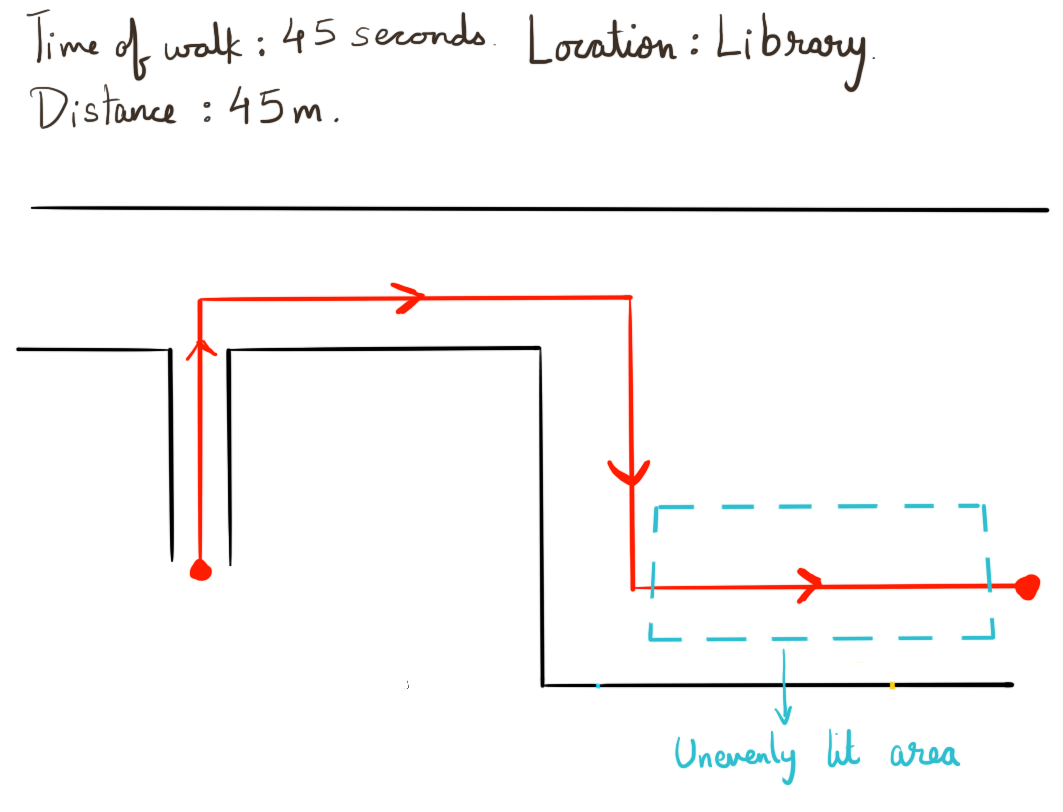 Time of walk : 45 seconds. Location : Library.
Distance : 45m.
Unevenly lit area